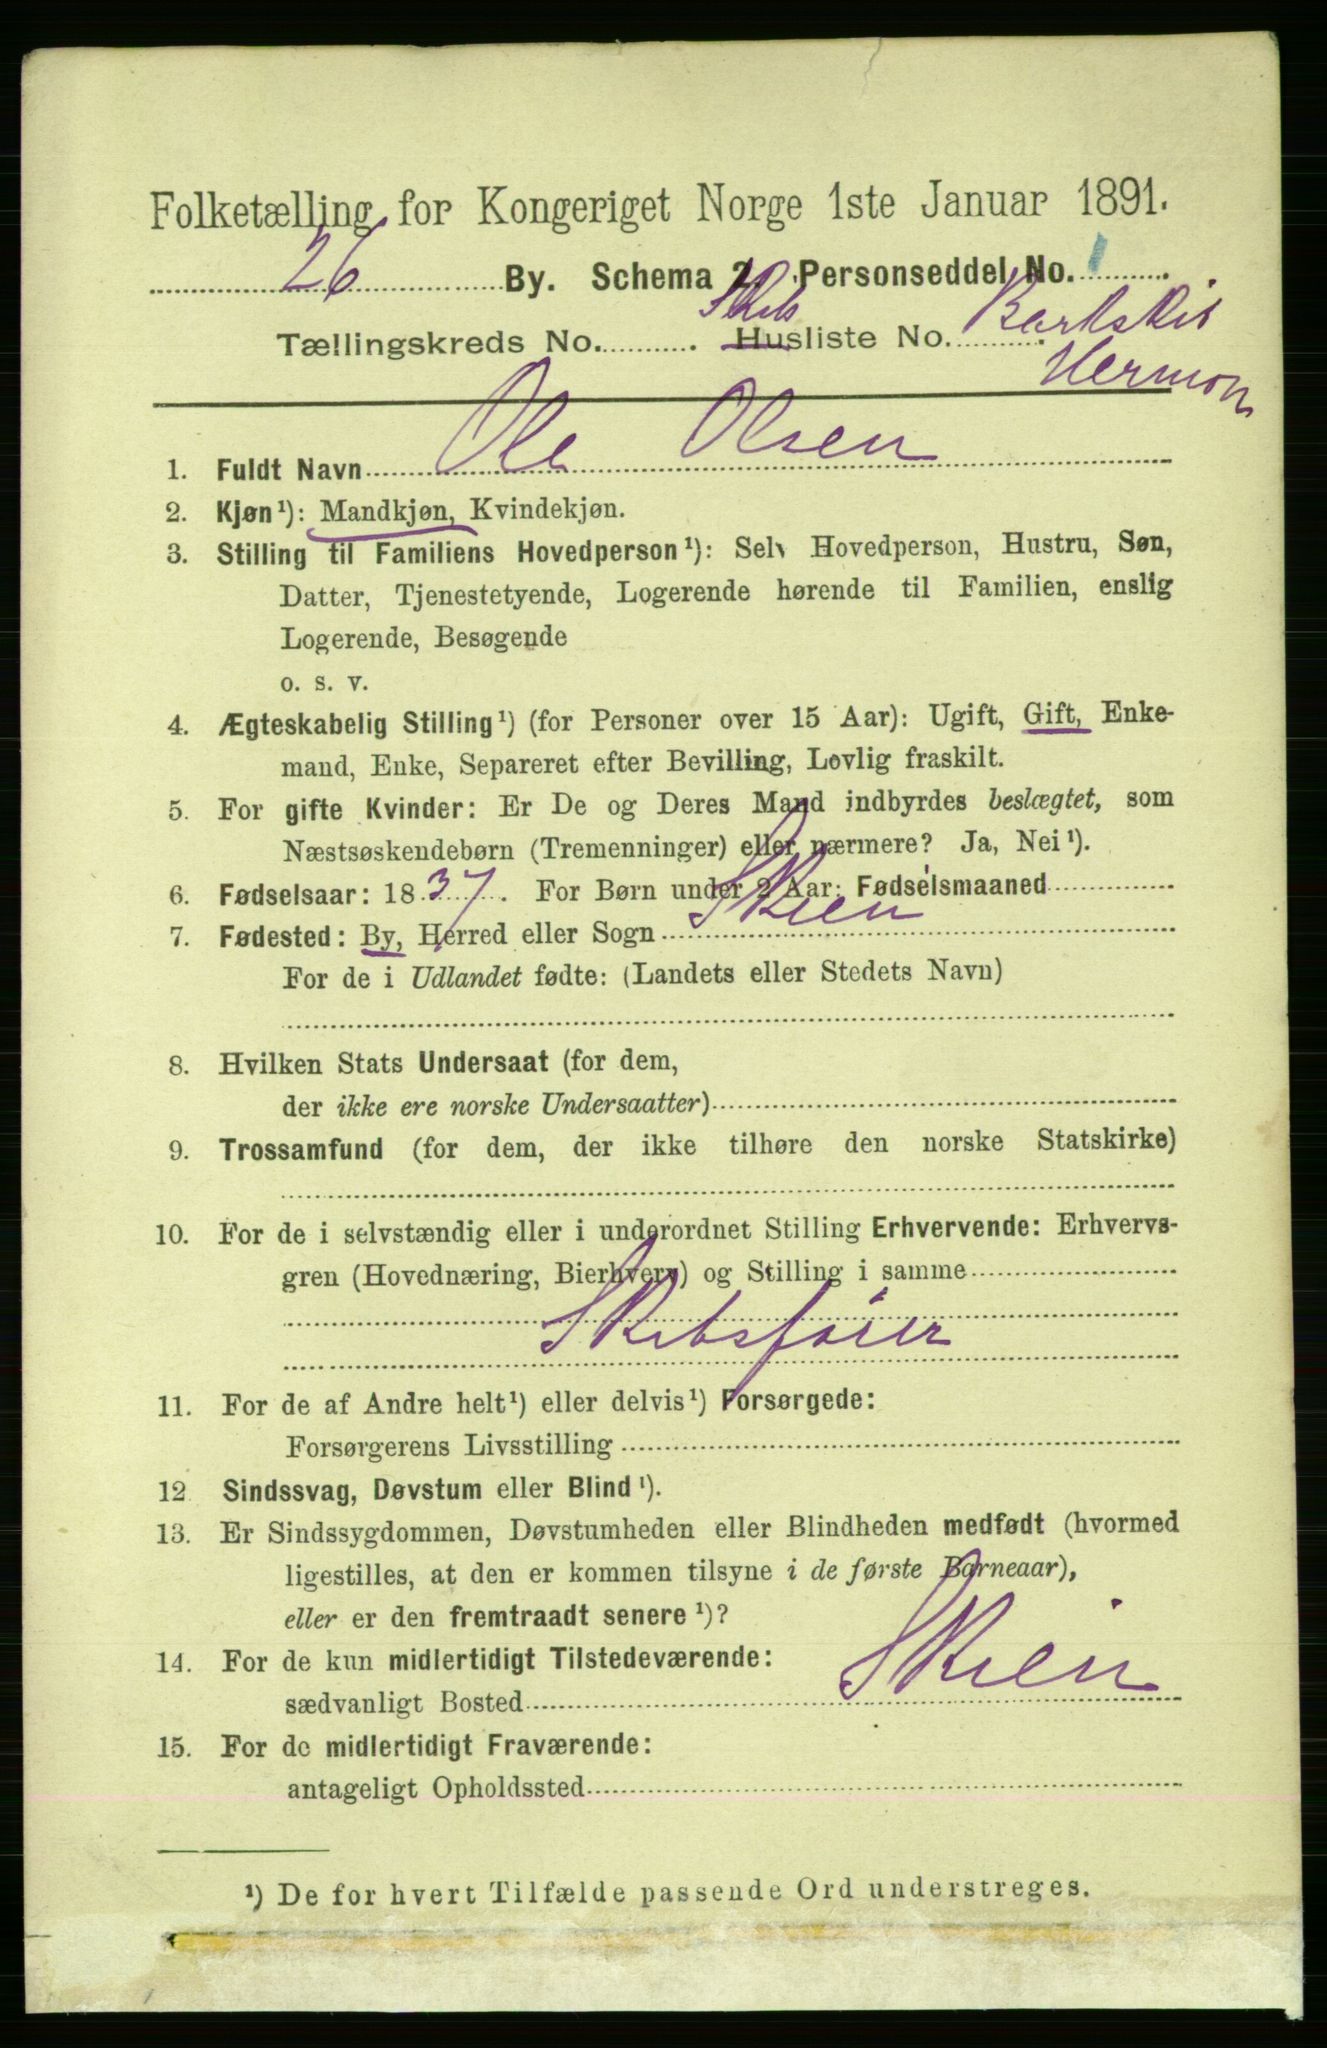 Folketælling for Kongeriget Norge 1ste Januar 1891.
26 By. Schema 2. Personseddel No. 1
Tællingskreds No. Skibs Husliste No. Barkskib
Hermon
1. Fuldt Navn Ole Olsen
2. Kjøn¹): Mandkjøn, Kvindekjøn.
3. Stilling til Familiens Hovedperson¹): Selv Hovedperson, Hustru, Søn,
Datter, Tjenestetyende, Logerende hørende til Familien, enslig
Logerende, Besøgende
o. s. v.
4. Ægteskabelig Stilling¹) (for Personer over 15 Aar): Ugift, Gift, Enke-
mand, Enke, Separeret efter Bevilling, Lovlig fraskilt.
5. For gifte Kvinder: Er De og Deres Mand indbyrdes beslægtet, som
Næstsøskendebørn (Tremenninger) eller nærmere? Ja, Nei¹).
6. Fødselsaar: 1837. For Børn under 2 Aar: Fødselsmaaned
7. Fødested: By, Herred eller Sogn Skien
For de i Udlandet fødte: (Landets eller Stedets Navn)
8. Hvilken Stats Undersaat (for dem,
der ikke ere norske Undersaatter)
9. Trossamfund (for dem, der ikke tilhøre den norske Statskirke)
10. For de i selvstændig eller i underordnet Stilling Erhvervende: Erhvervs-
gren (Hovednæring, Bierhverv) og Stilling i samme
Skibsfører
11. For de af Andre helt¹) eller delvis¹) Forsørgede:
Forsørgerens Livsstilling
12 Sindssvag, Døvstum eller Blind¹).
13. Er Sindssygdommen, Døvstumheden eller Blindheden medfødt (hvormed
ligestilles, at den er kommen tilsyne i de første Barneaar),
eller er den fremtraadt senere¹)?
14. For de kun midlertidigt Tilstedeværende:
sædvanligt Bosted Skien
15. For de midlertidigt Fraværende:
antageligt Opholdssted
¹) De for hvert Tilfælde passende Ord understreges.